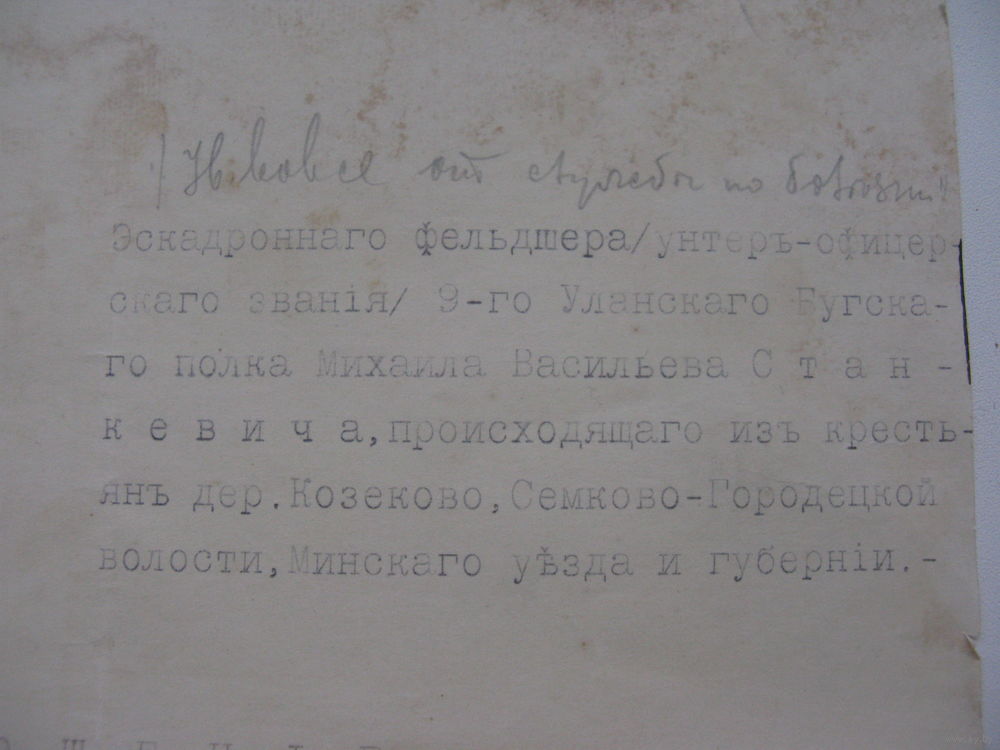 отъ службы по
Эскадроннаго фельдшера/унтеръ-офицер-
скаго званія/ 9-го Уланскаго Бугска-
го полка Михаила Васильева С т а н -
к е в и ч а,происходящаго изъ кресть-
янъ дер.Козеково,Семково-Городецкой
волости,Минскаго уѣзда и губерніи.-